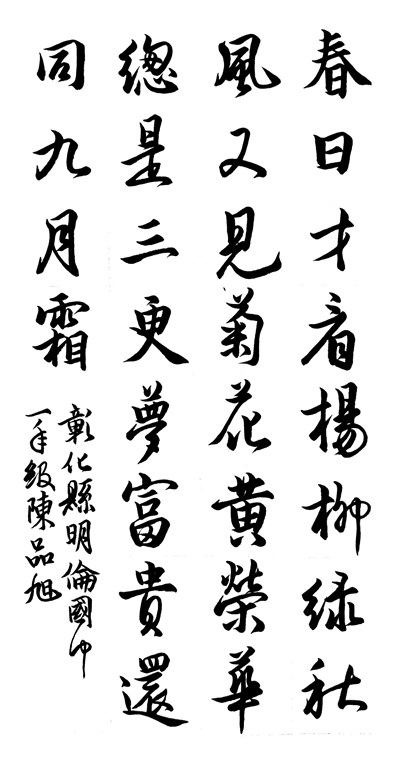 春日才看楊柳綠秋
風又見菊花黃榮華
總是三更夢富貴還
同九月霜
彰化縣明倫國中
一年級陳品旭